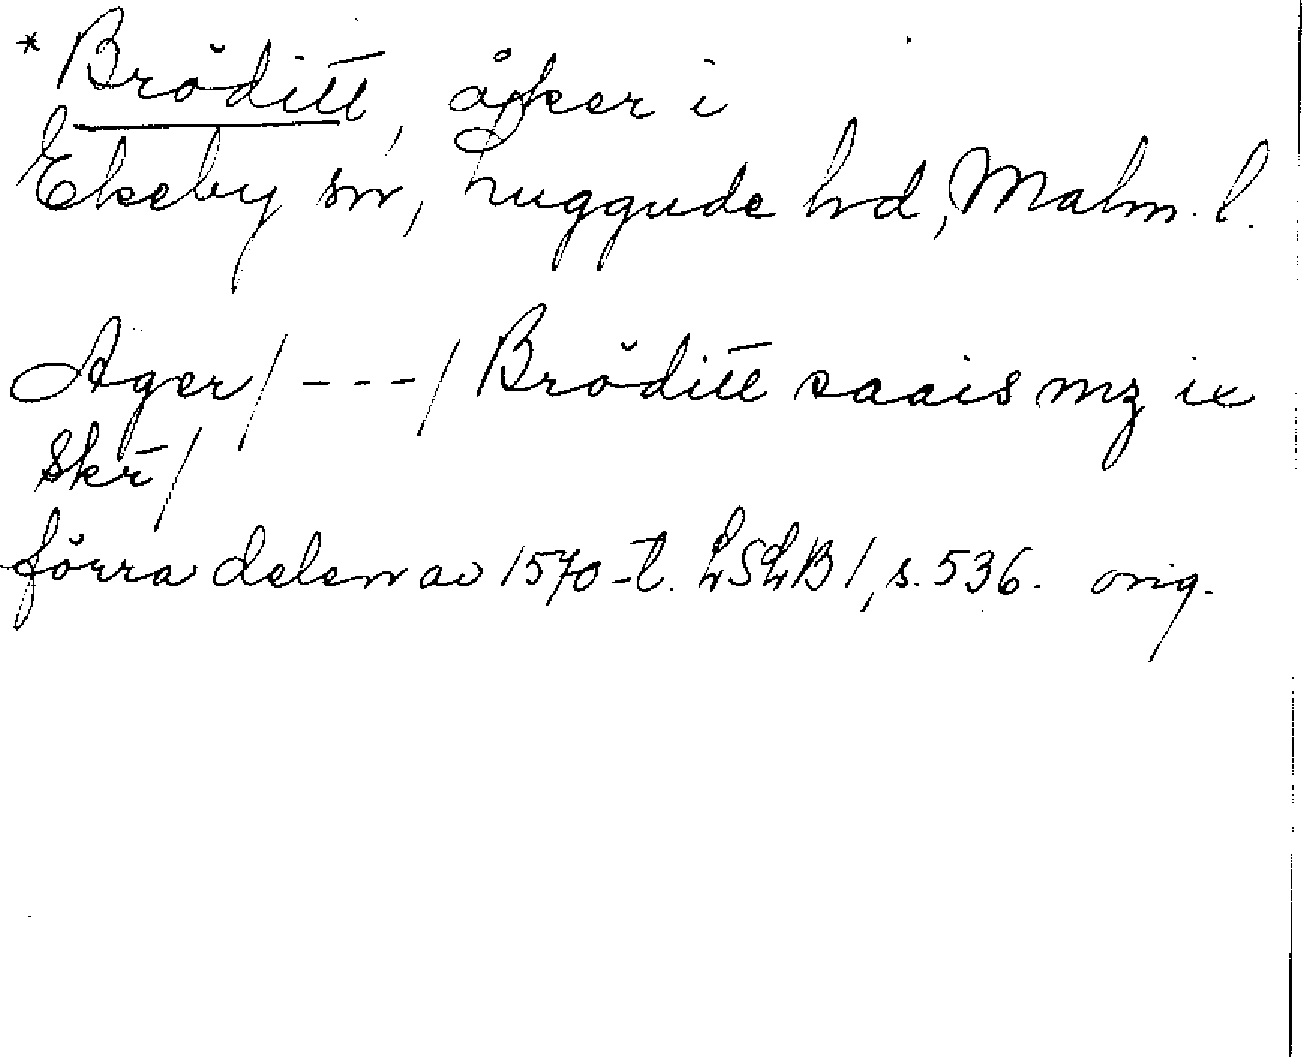 *Brŏditt, åker i
Ekeby sn, Luggude hd, Malm. l.
Ager/---/ Brŏditt saais mz ix
Skr̄/
förra delen av 1570-t. LSLB 1, s. 536. orig.